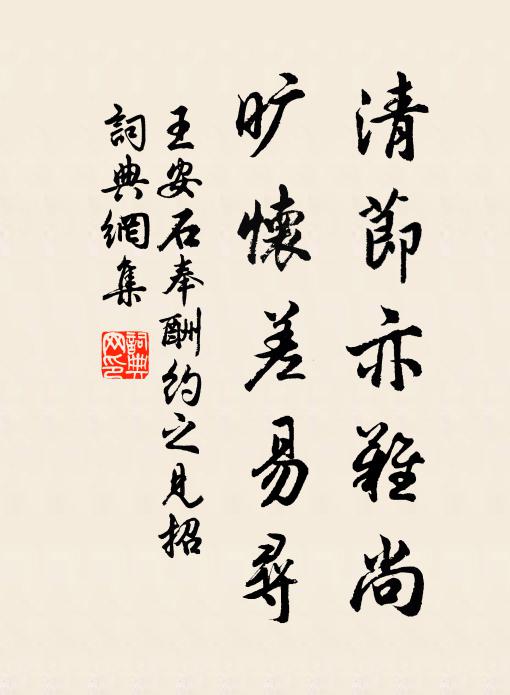 清節亦難尚
旷懷差易尋
王安石奉酬约之見招
詞典網集
詞典网印